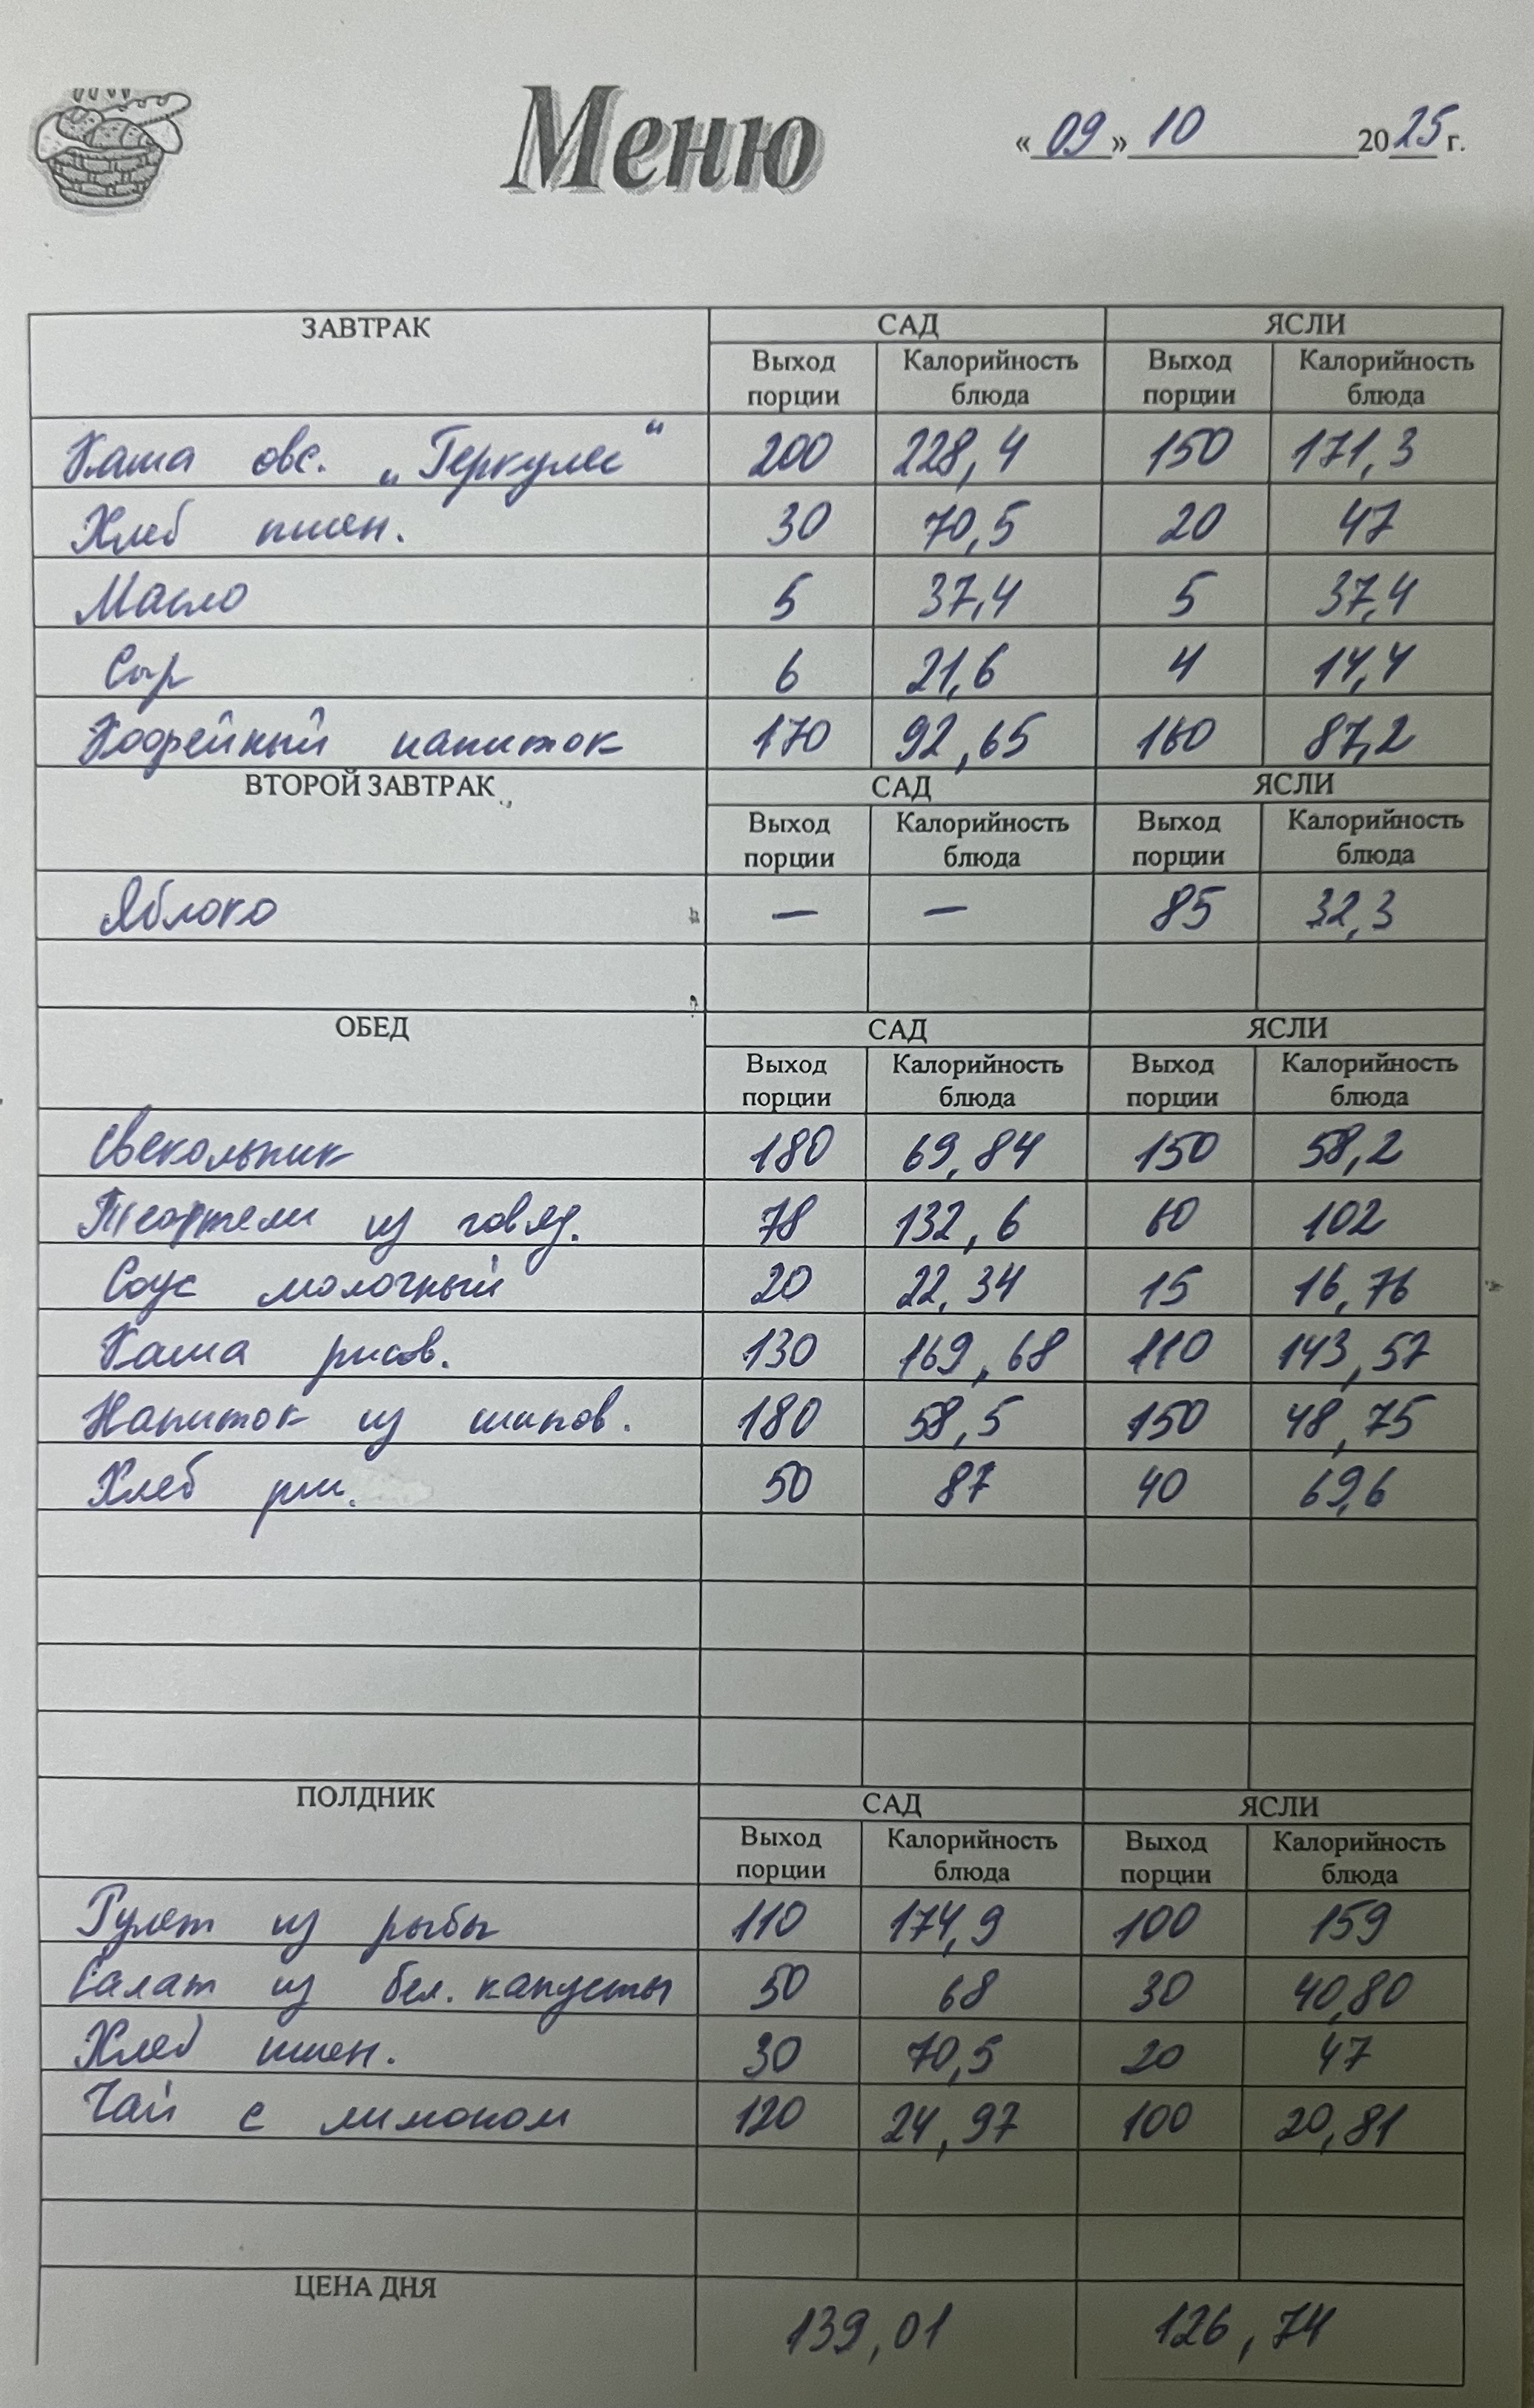 Меню
«09» 10 2025 г.
ЗАВТРАК САД ЯСЛИ
Выход порции Калорийность блюда Выход порции Калорийность блюда
Каша овс. „Геркулес“ 200 228,4 150 171,3
Хлеб пшен. 30 70,5 20 47
Масло 5 37,4 5 37,4
Сыр 6 21,6 4 14,4
Кофейный напиток 170 92,65 160 87,2
ВТОРОЙ ЗАВТРАК САД ЯСЛИ
Выход порции Калорийность блюда Выход порции Калорийность блюда
Яблоко — — 85 32,3
ОБЕД САД ЯСЛИ
Выход порции Калорийность блюда Выход порции Калорийность блюда
Свекольник 180 69,84 150 58,2
Тефтели из говяд. 78 132,6 60 102
Соус молочный 20 22,34 15 16,76
Каша рисов. 130 169,68 110 143,57
Напиток из шипов. 180 58,5 150 48,75
Хлеб рж. 50 87 40 69,6
ПОЛДНИК САД ЯСЛИ
Выход порции Калорийность блюда Выход порции Калорийность блюда
Рулет из рыбы 110 174,9 100 159
Салат из бел. капусты 50 68 30 40,80
Хлеб пшен. 30 70,5 20 47
Чай с лимоном 120 24,97 100 20,81
ЦЕНА ДНЯ 139,01 126,74